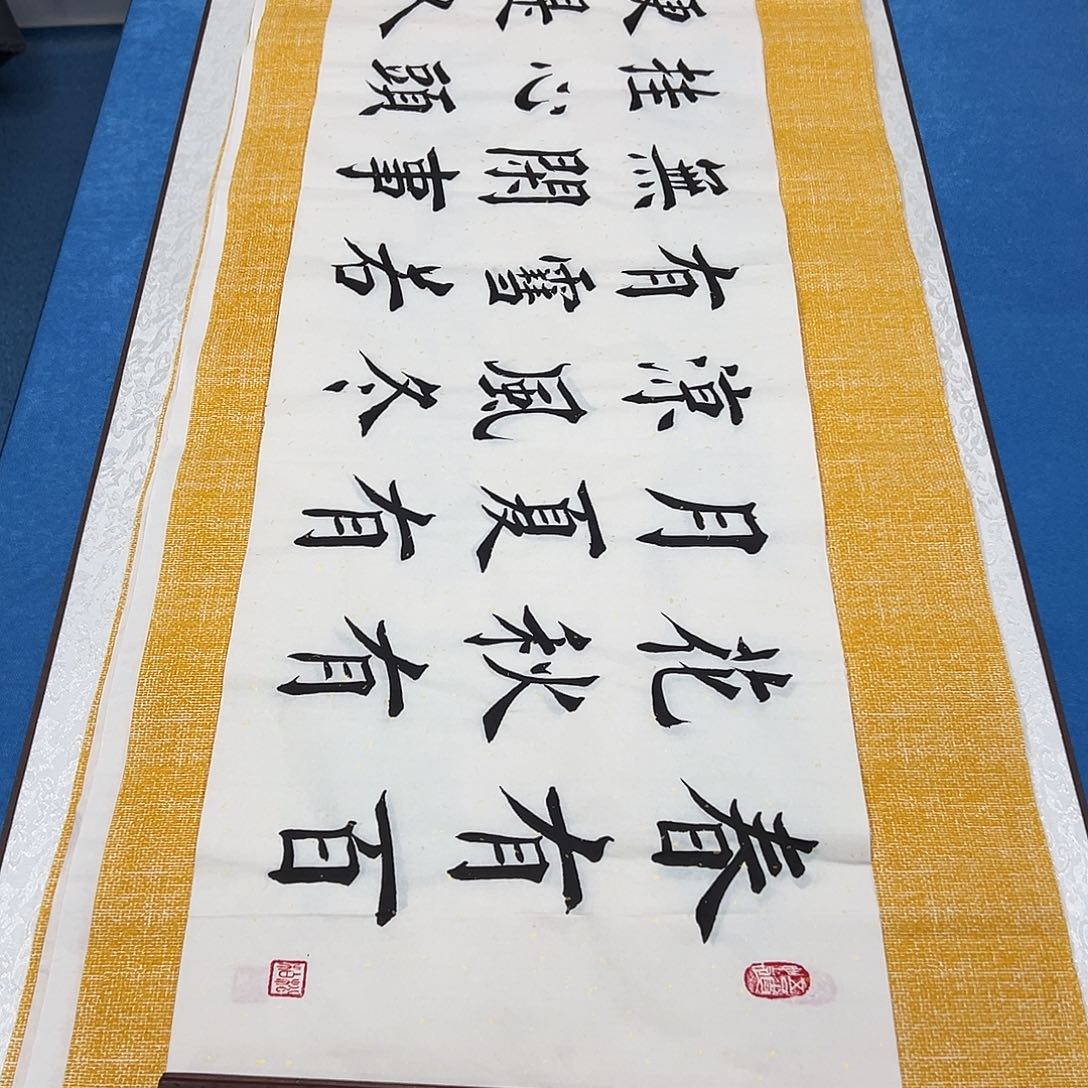 春有百
花秋有
月夏有
涼風冬
有雪若
無閒事
挂心頭
是人